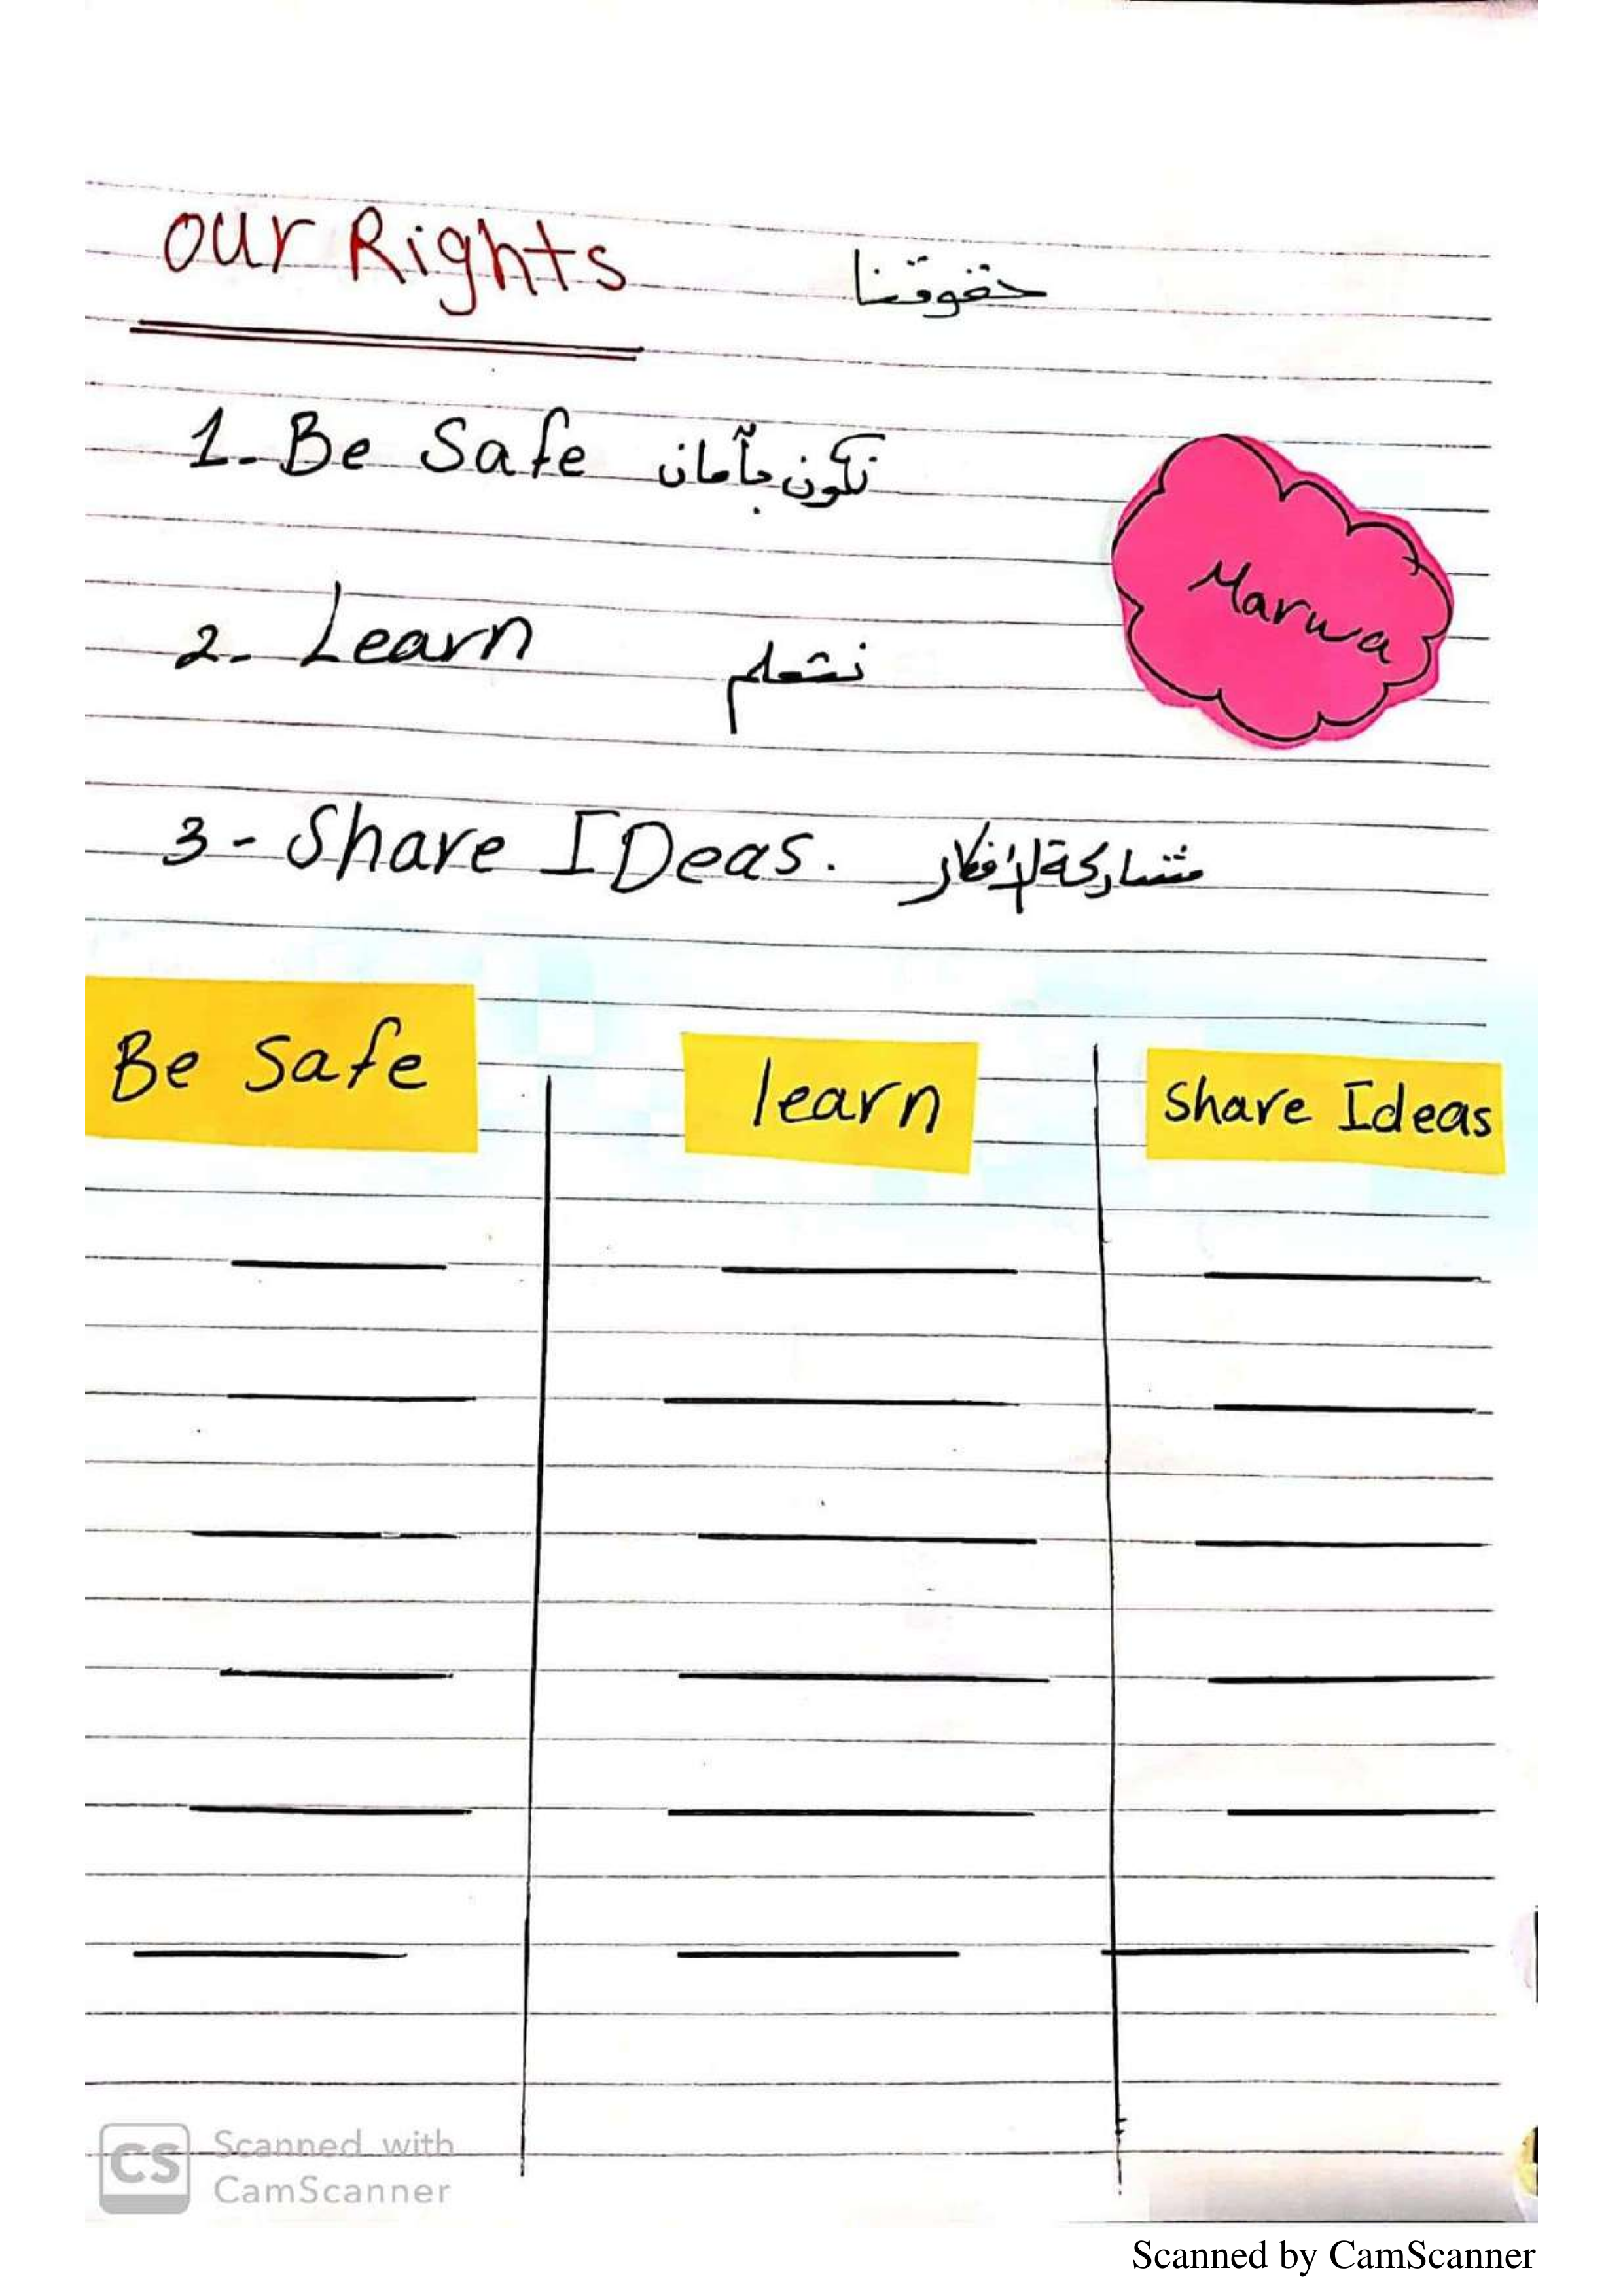 our Rights حقوقنا
1- Be Safe نكون بأمان
Marwa
2- Learn نتعلم
3- Share IDeas. مشاركة الأفكار
Be Safe learn share Ideas
CS Scanned with
CamScanner
Scanned by CamScanner